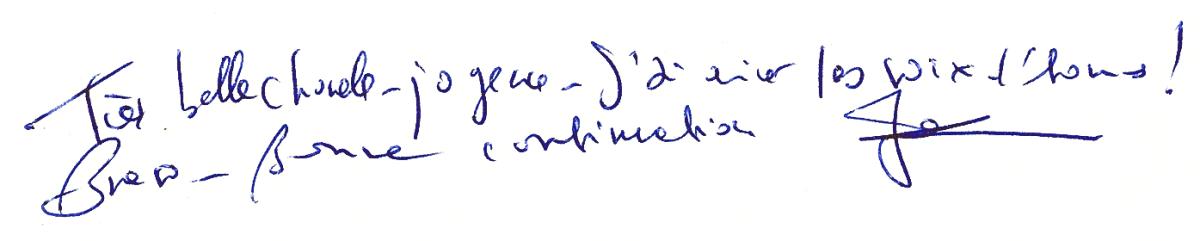 Très belle chorale - joyeuse - J'ai aimé les voix d'hommes !
Bravo - Bonne continuation